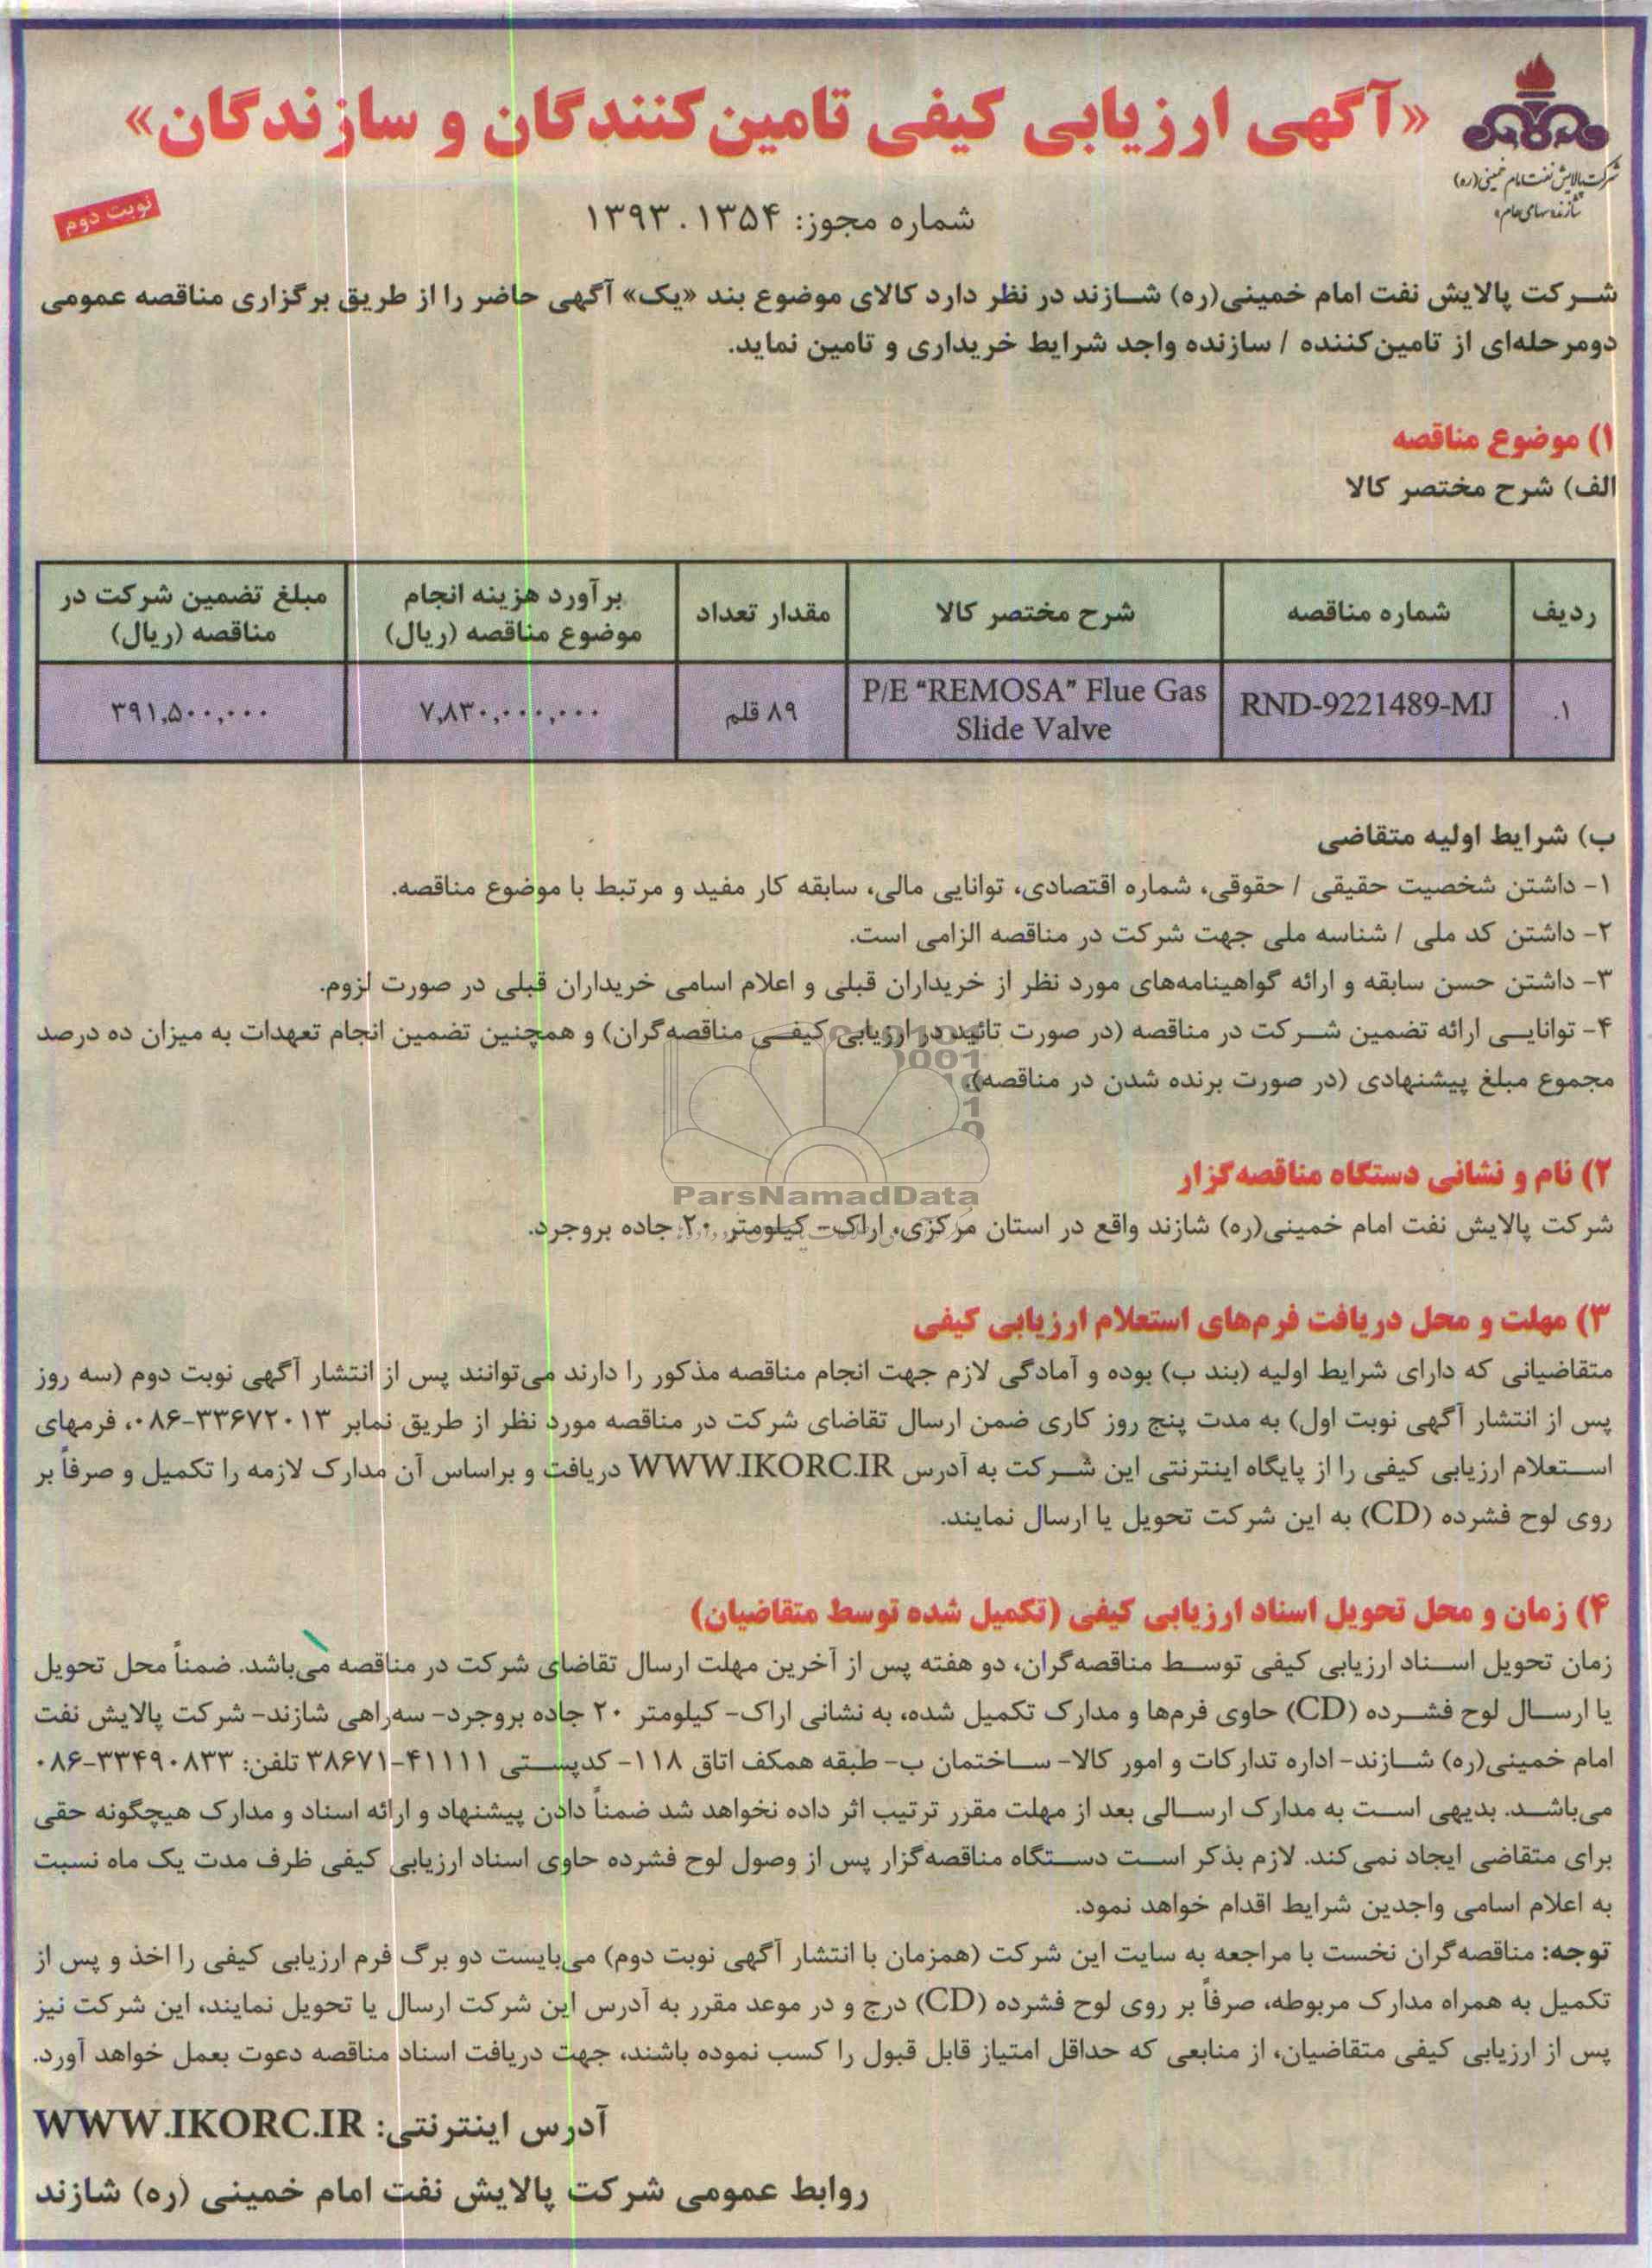 «آگهی ارزیابی کیفی تامین‌کنندگان و سازندگان»
شرکت پالایش نفت امام خمینی(ره)
شازند«سهامی عام»
نوبت دوم
شماره مجوز: ۱۳۹۳.۱۳۵۴
شرکت پالایش نفت امام خمینی(ره) شازند در نظر دارد کالای موضوع بند «یک» آگهی حاضر را از طریق برگزاری مناقصه عمومی
دومرحله‌ای از تامین‌کننده / سازنده واجد شرایط خریداری و تامین نماید.
۱) موضوع مناقصه
الف) شرح مختصر کالا
ردیف | شماره مناقصه | شرح مختصر کالا | مقدار تعداد | برآورد هزینه انجام موضوع مناقصه (ریال) | مبلغ تضمین شرکت در مناقصه (ریال)
۱. | RND-9221489-MJ | P/E “REMOSA” Flue Gas Slide Valve | ۸۹ قلم | ۷,۸۳۰,۰۰۰,۰۰۰ | ۳۹۱,۵۰۰,۰۰۰
ب) شرایط اولیه متقاضی
۱- داشتن شخصیت حقیقی / حقوقی، شماره اقتصادی، توانایی مالی، سابقه کار مفید و مرتبط با موضوع مناقصه.
۲- داشتن کد ملی / شناسه ملی جهت شرکت در مناقصه الزامی است.
۳- داشتن حسن سابقه و ارائه گواهینامه‌های مورد نظر از خریداران قبلی و اعلام اسامی خریداران قبلی در صورت لزوم.
۴- توانایی ارائه تضمین شرکت در مناقصه (در صورت تائید در ارزیابی کیفی مناقصه‌گران) و همچنین تضمین انجام تعهدات به میزان ده درصد
مجموع مبلغ پیشنهادی (در صورت برنده شدن در مناقصه).
ParsNamadData
۲) نام و نشانی دستگاه مناقصه‌گزار
شرکت پالایش نفت امام خمینی(ره) شازند واقع در استان مرکزی، اراک- کیلومتر ۲۰ جاده بروجرد.
۳) مهلت و محل دریافت فرم‌های استعلام ارزیابی کیفی
متقاضیانی که دارای شرایط اولیه (بند ب) بوده و آمادگی لازم جهت انجام مناقصه مذکور را دارند می‌توانند پس از انتشار آگهی نوبت دوم (سه روز
پس از انتشار آگهی نوبت اول) به مدت پنج روز کاری ضمن ارسال تقاضای شرکت در مناقصه مورد نظر از طریق نمابر ۳۳۶۷۲۰۱۳-۰۸۶، فرمهای
استعلام ارزیابی کیفی را از پایگاه اینترنتی این شرکت به آدرس WWW.IKORC.IR دریافت و براساس آن مدارک لازمه را تکمیل و صرفاً بر
روی لوح فشرده (CD) به این شرکت تحویل یا ارسال نمایند.
۴) زمان و محل تحویل اسناد ارزیابی کیفی (تکمیل شده توسط متقاضیان)
زمان تحویل اسناد ارزیابی کیفی توسط مناقصه‌گران، دو هفته پس از آخرین مهلت ارسال تقاضای شرکت در مناقصه می‌باشد. ضمناً محل تحویل
یا ارسال لوح فشرده (CD) حاوی فرم‌ها و مدارک تکمیل شده، به نشانی اراک- کیلومتر ۲۰ جاده بروجرد- سه‌راهی شازند- شرکت پالایش نفت
امام خمینی(ره) شازند- اداره تدارکات و امور کالا- ساختمان ب- طبقه همکف اتاق ۱۱۸- کدپستی ۴۱۱۱۱-۳۸۶۷۱ تلفن: ۳۳۴۹۰۸۳۳-۰۸۶
می‌باشد. بدیهی است به مدارک ارسالی بعد از مهلت مقرر ترتیب اثر داده نخواهد شد ضمناً دادن پیشنهاد و ارائه اسناد و مدارک هیچگونه حقی
برای متقاضی ایجاد نمی‌کند. لازم بذکر است دستگاه مناقصه‌گزار پس از وصول لوح فشرده حاوی اسناد ارزیابی کیفی ظرف مدت یک ماه نسبت
به اعلام اسامی واجدین شرایط اقدام خواهد نمود.
توجه: مناقصه‌گران نخست با مراجعه به سایت این شرکت (همزمان با انتشار آگهی نوبت دوم) می‌بایست دو برگ فرم ارزیابی کیفی را اخذ و پس از
تکمیل به همراه مدارک مربوطه، صرفاً بر روی لوح فشرده (CD) درج و در موعد مقرر به آدرس این شرکت ارسال یا تحویل نمایند، این شرکت نیز
پس از ارزیابی کیفی متقاضیان، از منابعی که حداقل امتیاز قابل قبول را کسب نموده باشند، جهت دریافت اسناد مناقصه دعوت بعمل خواهد آورد.
آدرس اینترنتی: WWW.IKORC.IR
روابط عمومی شرکت پالایش نفت امام خمینی (ره) شازند